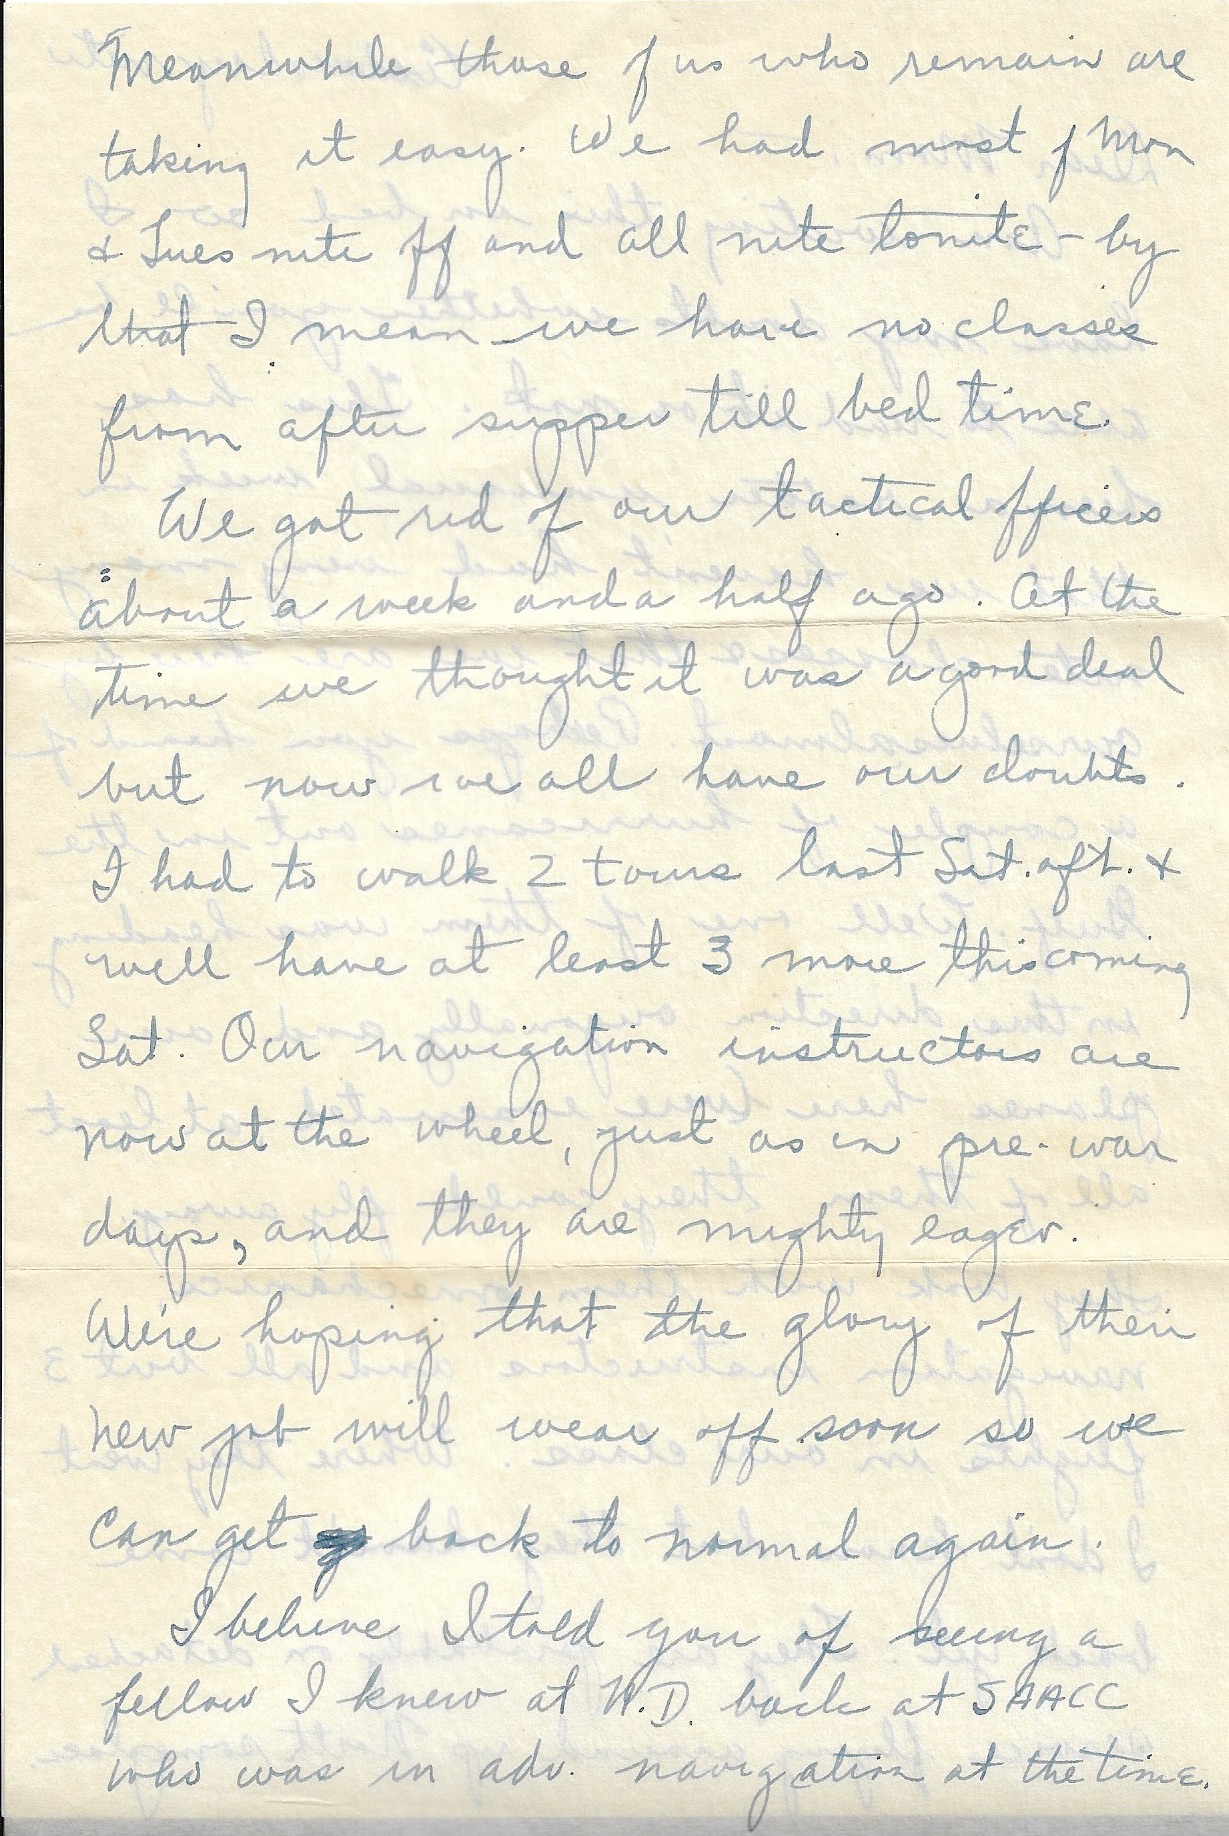 Meanwhile those of us who remain are
taking it easy. We had most of Mon
& Tues nite off and all nite tonite - by
that I mean we have no classes
from after supper till bed time.
We got rid of our tactical officers
about a week and a half ago. At the
time we thought it was a good deal
but now we all have our doubts.
I had to walk 2 tours last Sat. aft. &
well have at least 3 more this coming
Sat. Our navigation instructors are
now at the wheel, just as in pre-war
days, and they are mighty eager.
We're hoping that the glory of their
new job will wear off soon so we
can get back to normal again.
I believe I told you of seeing a
fellow I knew at N.D. back at SAACC
who was in adv. navigation at the time.